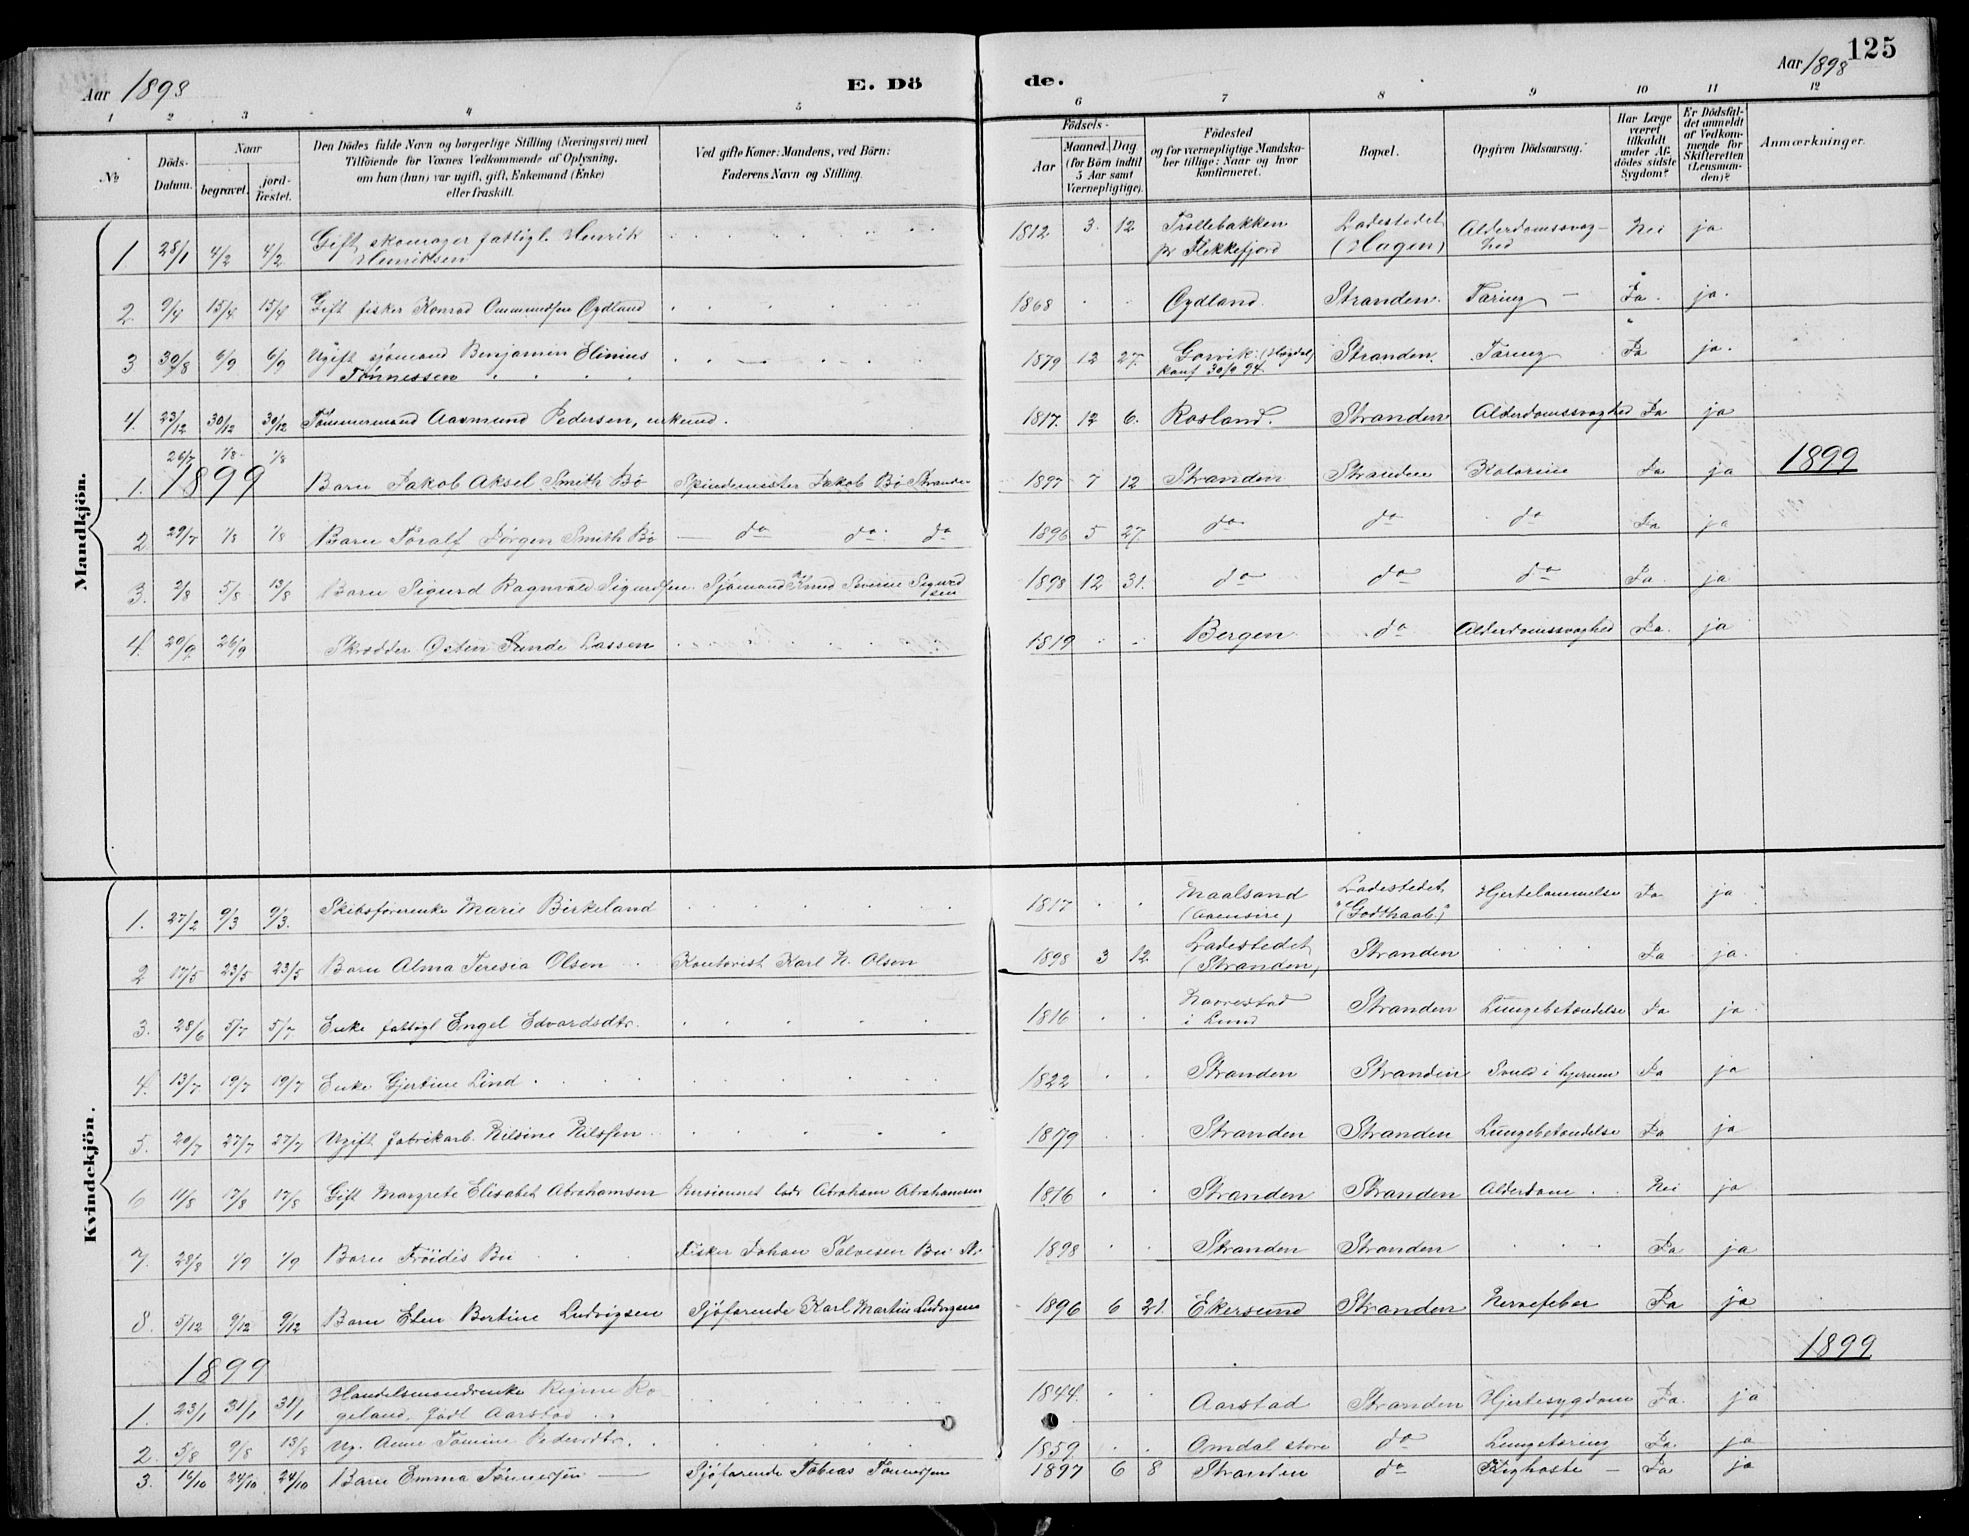 125
Aar 1898
E. Döde.
Aar 1898
1 2 3 4 5 6 7 8 9 10 11 12
No
Döds-Datum.
Naar
begravet.
jord-fæstet.
Den Dödes fulde Navn og borgerlige Stilling (Næringsvei) med
Tilföiende for Voxnes Vedkommende af Oplysning,
om han (hun) var ugift, gift, Enkemand (Enke)
eller fraskilt.
Ved gifte Koner: Mandens, ved Börn:
Faderens Navn og Stilling.
Födsels-
Aar
Maaned. Dag
(for Börn indtil
5 Aar samt
Værnepligtige).
Födested
og for værnepligtige Mandska-
ber tillige: Naar og hvor
konfirmeret.
Bopæl.
Opgiven Dödsaarsag.
Har Læge
været
tilkaldt
under Af-
dödes sidste
Sygdom?
Er Dödsfal-
det anmeldt
af Vedkom-
mende for
Skifteretten
(Lensman-
den)?
Anmærkninger.
Mandkjön.
1 28/1 4/2 4/2 Gift skomager fattigl. Henrik Henriksen 1812 3. 12 Trollebakken pr Flekkefjord Ladestedet (Hagen) Alderdomssvaghed Nei ja
2. 9/4 15/4 15/4 Gift fisker Konrad Ommundsen Oydland 1868 Oydland. Stranden. Tæring Ja. ja.
3 30/8 6/9 6/9 Ugift sjømand Benjamin Elinius Tönnessen 1879 12 27. (Høgdal) konf 94. Stranden. Tæring Ja ja.
4. 23/12 30/12 30/12 Tömmermand Aasmund Pedersen, enkemd. 1817. 12 6. Rosland. Stranden Alderdomssvaghed Ja ja
1899 1899
1. 26/7 1/8 1/8 Barn Jakob Aksel Smith Bø Spindemester Jakob Bø Stranden 1897 7 12 Stranden Stranden Kolerine Ja ja
2 29/7 1/8 1/8 Barn Toralf Jørgen Smith Bø do do do 1896 5 27. do do do Ja ja
3. 2/8 5/8 13/8 Barn Sigurd Ragnvald Sigurdsen Sjömand Knud Severin Sigurdsen 1898 12 31. do do do Ja ja
4. 20/9 26/9 Skrædder Østen Sunde Lassen 1819 Bergen do Alderdomssvaghed Ja. ja
Kvindekjön.
1. 27/2 9/3 9/3. Skibsförerenke Marie Birkeland 1817 Maalsand (Aaensire) Ladestedet "(Godthaab)" Hjertelammelse Ja ja
2 17/5 23/5 23/5 Barn Alma Teresia Olsen Kontorist Karl N. Olsen 1898 3 12. Ladestedet (Stranden) Stranden Ja ja.
3. 28/6 5/7 5/7 Enke fattigl Engel Edvardsdtr. 1816 i Lund Stranden Lungebetændelse Ja ja
4. 13/7 19/7 19/7 Enke Gjertine Lind 1822 Stranden Stranden Svuld i hjernen Ja ja
5. 20/7 27/7 27/7 Ugift fabrikarb. Nilsine Nilssen 1879 Stranden Stranden Lungebetændelse Ja ja
6 11/8 17/8 17/8 Gift Margrete Elisabet Abrahamsen Pensioneret lods Abraham Abrahamsen 1816 Stranden Stranden Alderdom Nei ja
7. 28/8 1/9 1/9 Barn Fröidis Bu Fisker Johan Salvesen Bu 1898 Stranden Stranden Ja ja
8. 5/12 9/12 9/12 Barn Elen Bertine Ludvigsen Sjöfarende Karl Martin Ludvigsen 1896 6 21. Ekersund Stranden Nervefeber Ja ja
1899 1899
1. 23/1 31/1 31/1 Handelsmandsenke Regine Rogeland, födt Aarstad 1844. Aarstad Stranden Hjertesygdom Ja. ja
2. 5/8 9/8 13/8 Ug. Anne Tomine Pedersdtr. 1859 Omdal store do Lungetæring Ja. ja
3. 16/10 24/10 24/10 Barn Emma Tönnessen Sjöfarende Tobias Tönnessen 1897 6 8 Stranden do Kighoste Ja ja